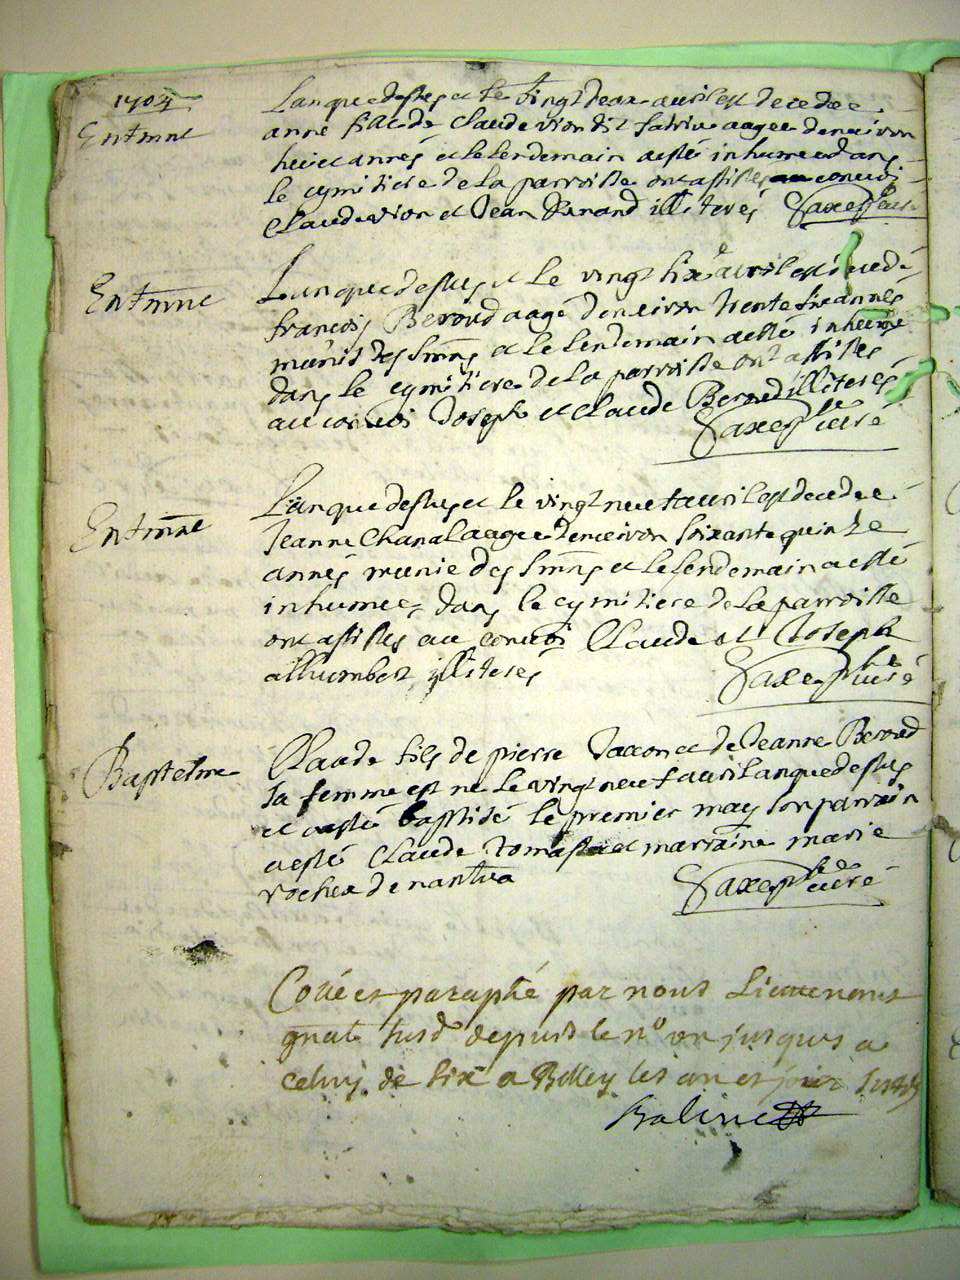 1704
Entmnt
Lan que dessus et le vingt deux avril est decedee
anne fille de Claude vion dit aagee denviron
huict années et le lendemain a esté inhumee dans
le cymitiere de la parroisse ont assistes au convoi
Claude vion et Jean Renand illiterés Saxe ptre curé
Entmnt
Lan que dessus et le vingt sixe avril est decedé
francois Beroud aagé denviron trente six années
munis des Smns et le lendemain a esté inhumé
dans le cymitiere de la parroisse ont assistes
au convoi Joseph et Claude Beroud illiterés
Saxe ptre curé
Entmnt
Lan que dessus et le vingt neuf avril est decedee
Jeanne Chanal aagee denviron soixante quinze
années munie des Smns et le lendemain a esté
inhumee dans le cymitiere de la parroisse
ont assistes au convoi Claude et Joseph
alhumbert illiterés Saxe ptre curé
Baptesme
Claude fils de pierre et de Jeanne Beroud
sa femme est ne le vingt neuf avril an que dessus
et a esté baptisé le premier may son parrain
a esté Claude et marraine marie
rochex de nantua Saxe ptre curé
Cotté et paraphé par nous Lieutenant
gnal susd depuis le nº un jusques a
celuy de six a Belley les an et jour susds